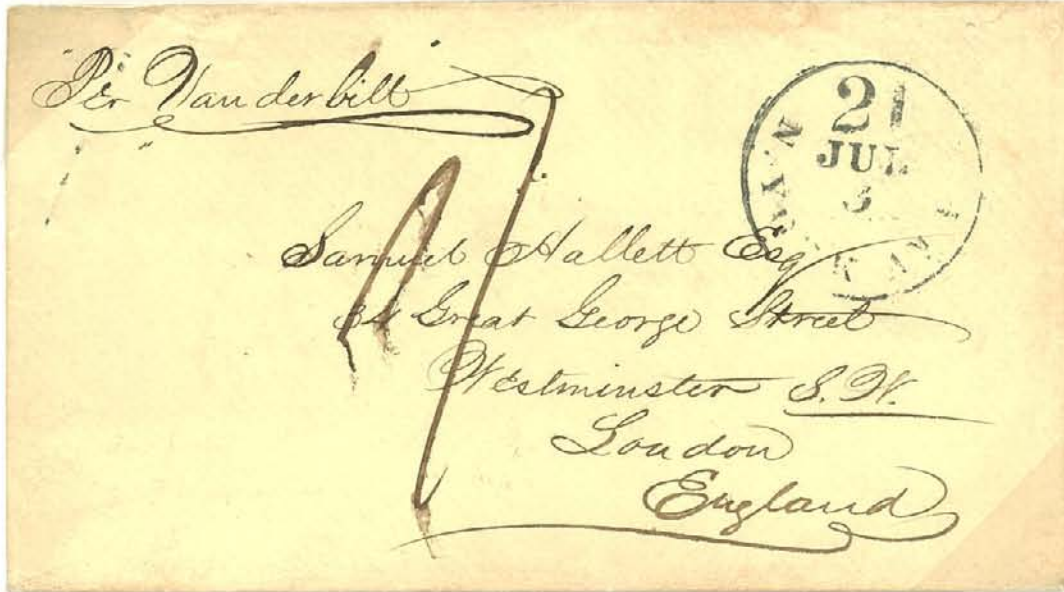 Per Vanderbilt
21
JUL
3
Samuel Hallett Esq
34 Great George Street
Westminster S.W.
London
England